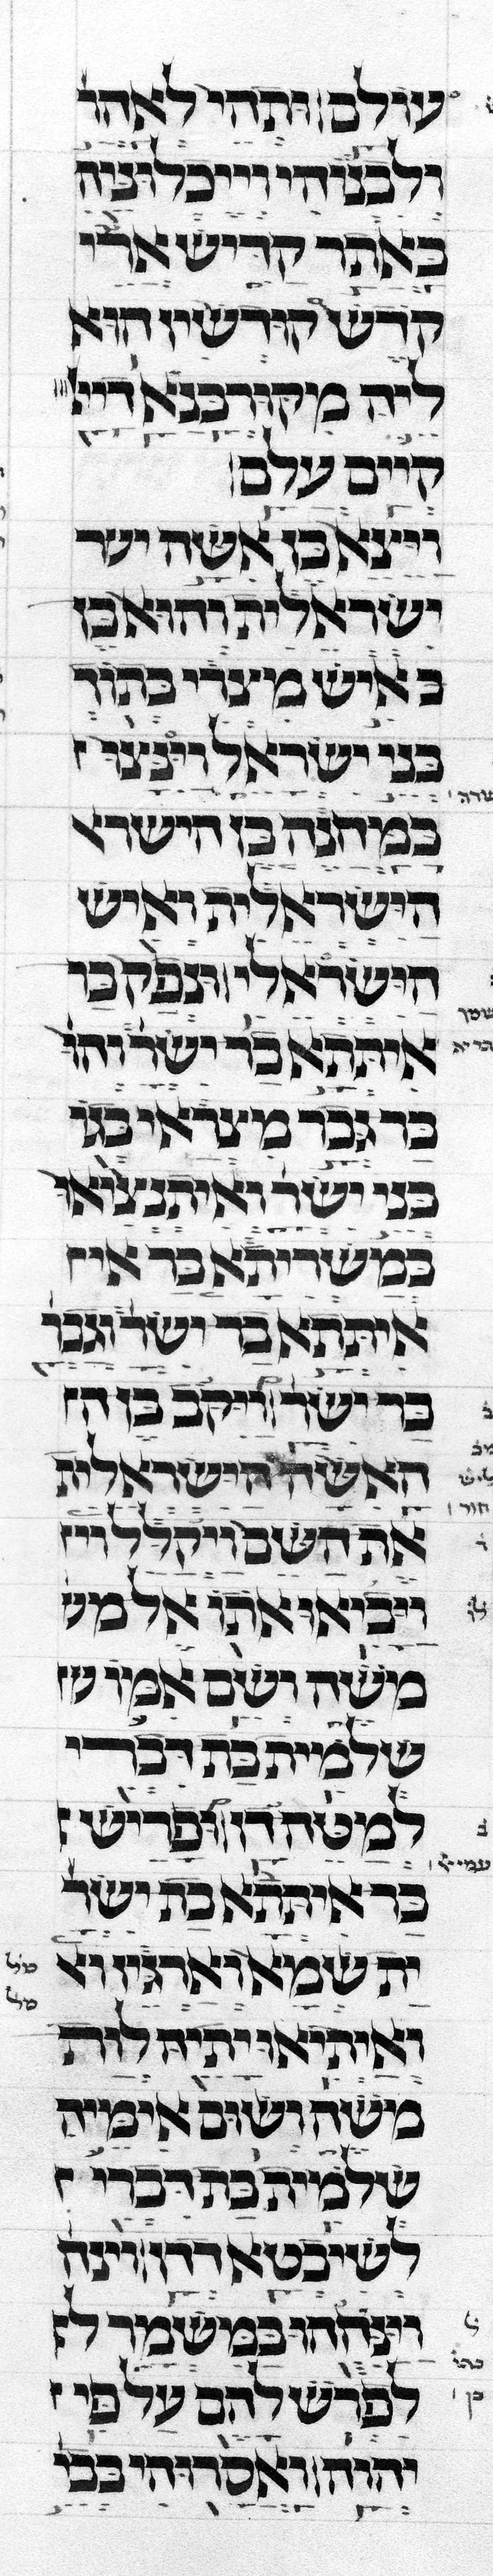 עולם ותהי לאהר
ולבנוהי וייכלוניה
באתר קדיש ארי
קדש קודשין הוא
ליה מקורבנא דייי
קיים עלם
ויצא בן אשה ישר
ישראלית והוא בן
ב איש מצרי בתוך
בני ישראל וינצו
במחנה בן הישרא
הישראלית ואיש
הישראלי ונפק בר
איתתא בר ישר והו
בר גבר מצראי בגו
בני ישר ואיתנציאו
במשריתא בר אי
איתתא בר ישר וגבר
בר ישר ויקב בן ה
האשה הישראלית
את השם ויקלל ויי
ויביאו אתו אל מש
משה ושם אמו ש
שלמית בת דברי
למטה דן ופריש
בר איתתא בת ישר
ית שמא וארגיז וא
ואיתיאו יתיה לות
משה ושום אימיה
שלמית בת דברי
לשיבטא דדן
ויניחהו במשמר ל
לפרש להם על פי
יהוה ואסרוהי בבי